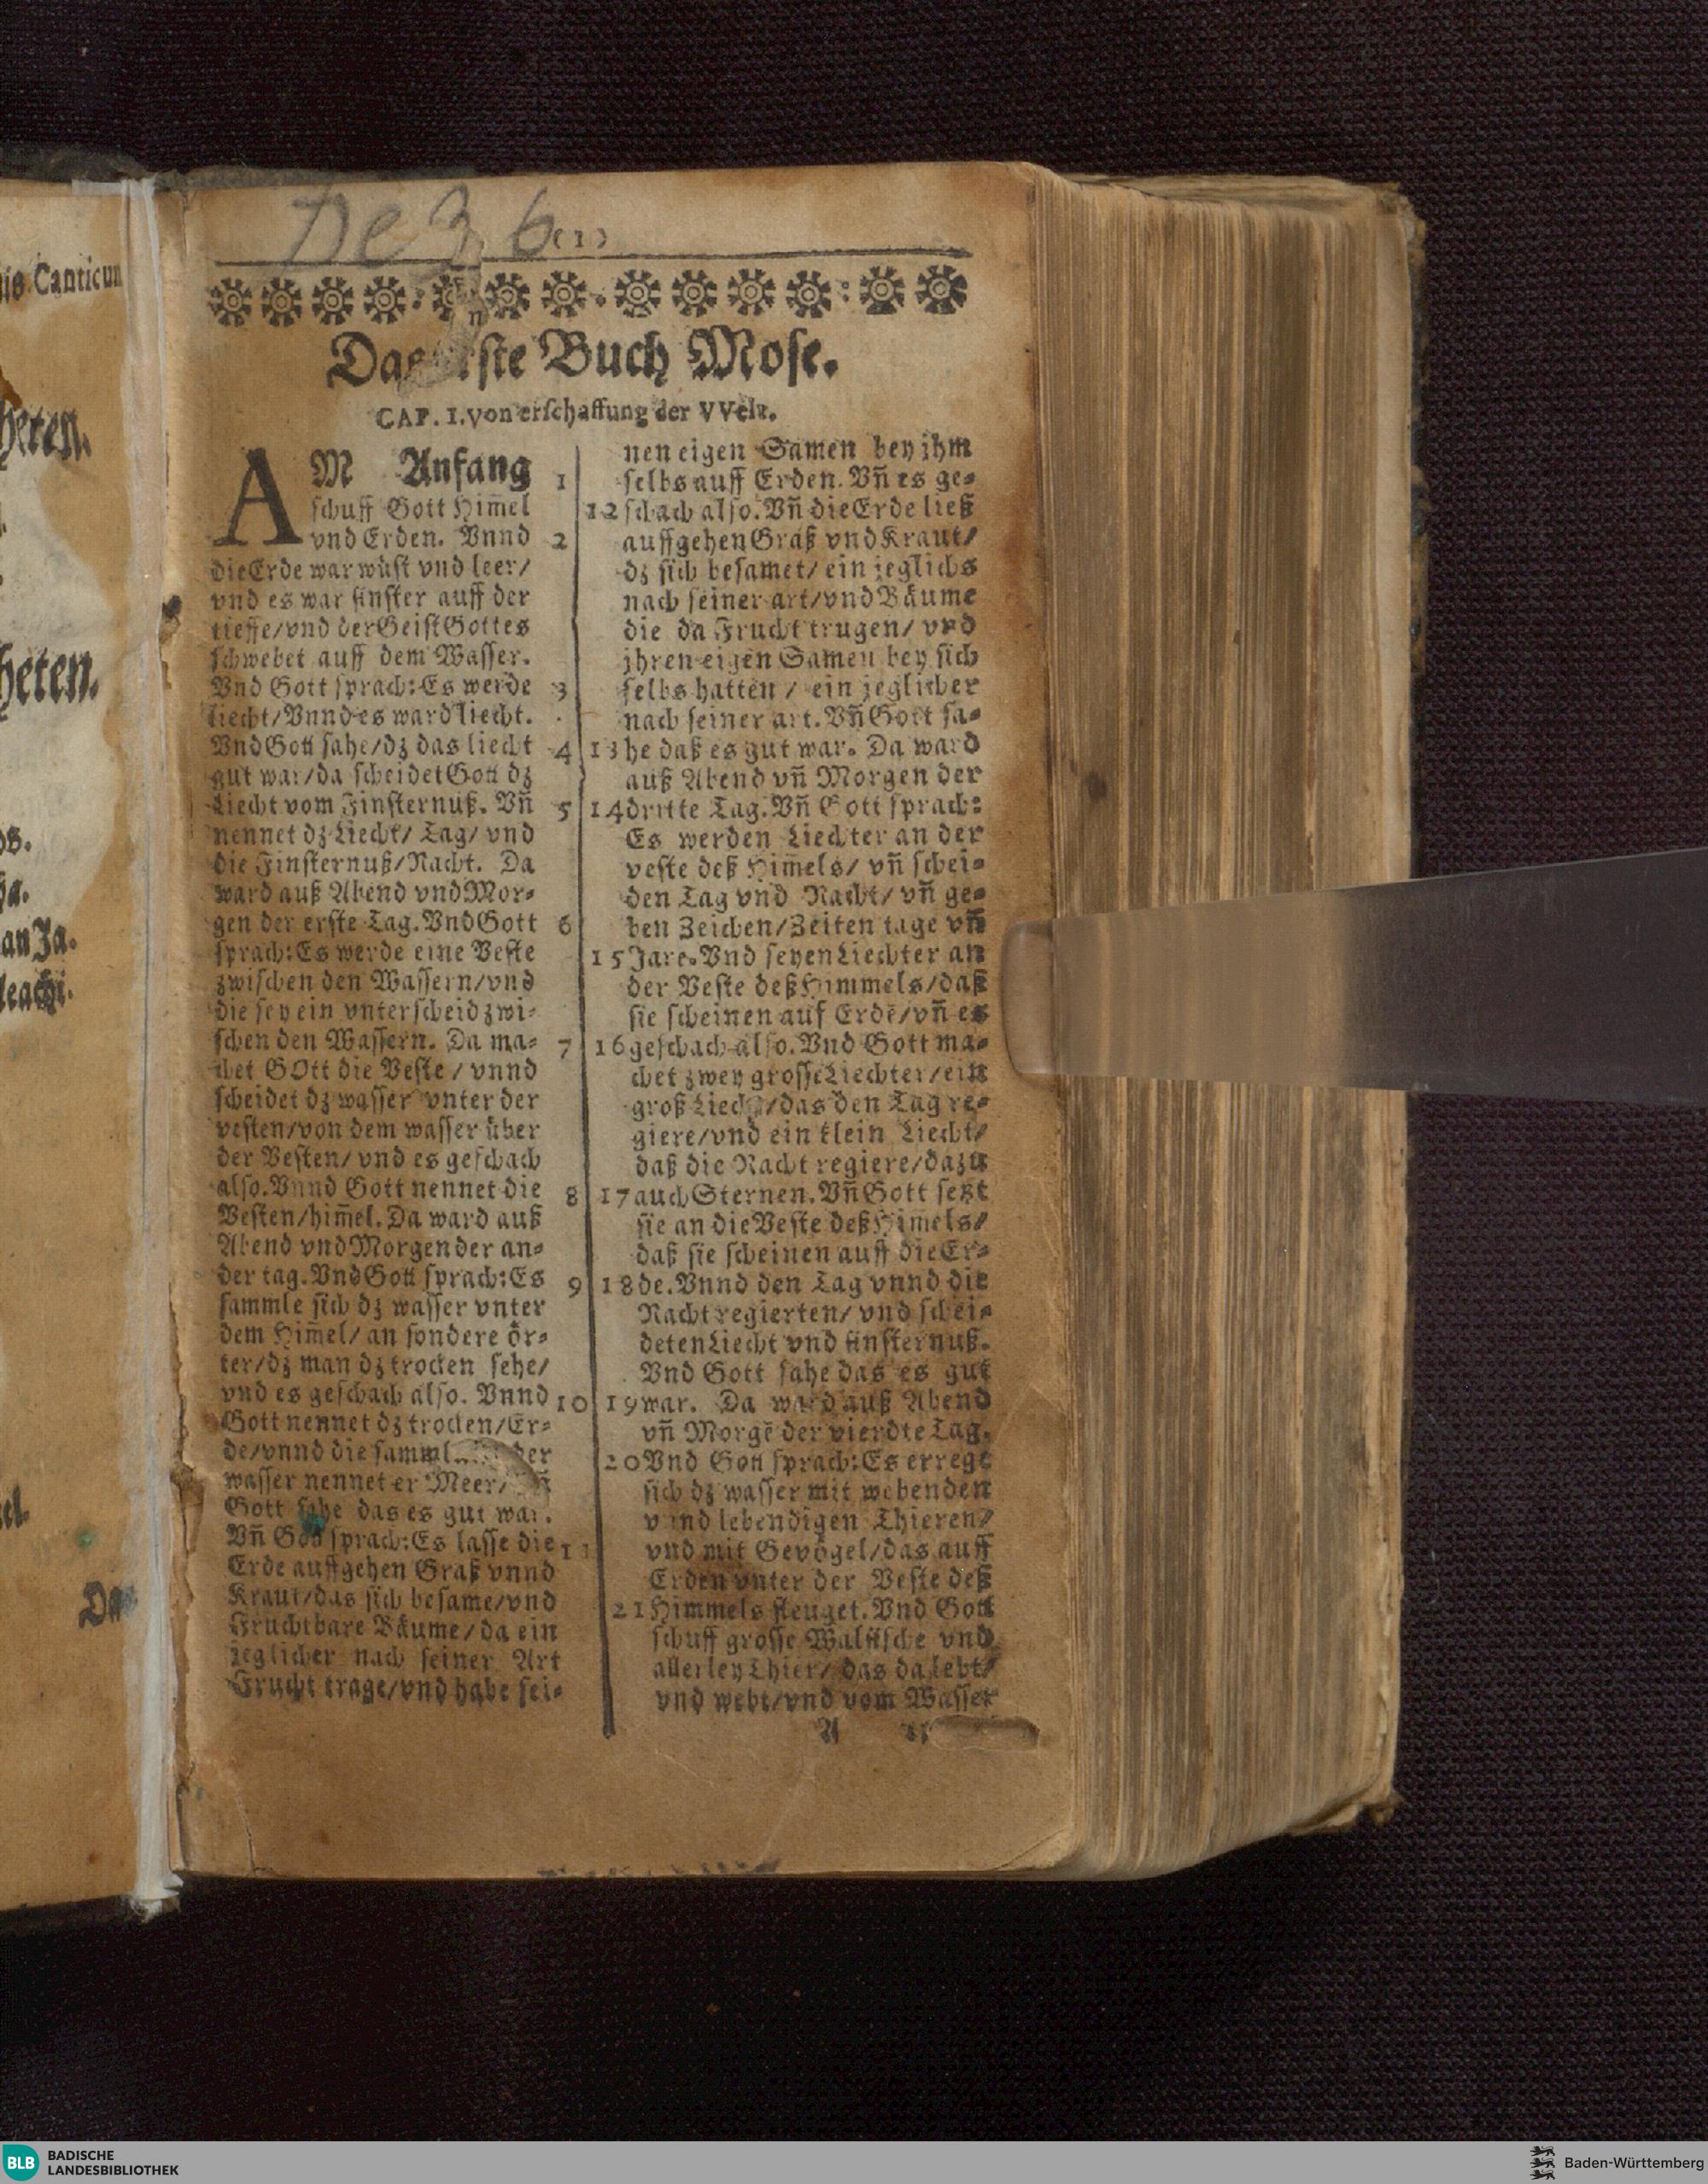 De 3 6
(1)
Das erste Buch Mose.
CAP. I. von erschaffung der VVelt.
AM Anfang 1
schuff Gott Him̃el
vnd Erden. Vnnd 2
die Erde war wüst vnd leer/
vnd es war finster auff der
tieffe/vnd der Geist Gottes
schwebet auff dem Wasser.
Vnd Gott sprach: Es werde 3
liecht/Vnnd es ward liecht.
Vnd Gott sahe/dz das liecht 4
gut war/da scheidet Gott dz
Liecht vom Finsternuß. Vñ 5
nennet dz Liecht/ Tag/ vnd
die Finsternuß/Nacht. Da
ward auß Abend vnd Mor-
gen der erste Tag. Vnd Gott 6
sprach: Es werde eine Veste
zwischen den Wassern/vnd
die sey ein vnterscheid zwi-
schen den Wassern. Da ma- 7
chet GOtt die Veste / vnnd
scheidet dz wasser vnter der
vesten/von dem wasser über
der Vesten/ vnd es geschach
also. Vnnd Gott nennet die 8
Vesten/him̃el. Da ward auß
Abend vnd Morgen der an-
der tag. Vnd Gott sprach: Es 9
sammle sich dz wasser vnter
dem Him̃el/ an sondere ör-
ter/dz man dz trocken sehe/
vnd es geschach also. Vnnd 10
Gott nennet dz trocken/Er-
de/vnnd die samml der
wasser nennet er Meer/ Vñ
Gott sahe das es gut war.
Vñ Gott sprach: Es lasse die 11
Erde auffgehen Graß vnnd
Kraut/das sich besame/vnd
Fruchtbare Bäume/ da ein
jeglicher nach seiner Art
Frucht trage/vnd habe sei-
nen eigen Samen bey ihm
selbs auff Erden. Vñ es ge-
12 schach also. Vñ die Erde ließ
auffgehen Graß vnd Kraut/
dz sich besamet/ ein jeglichs
nach seiner art/vnd Bäume
die da Frucht trugen/ vnd
jhren eigen Samen bey sich
selbs hatten / ein jeglicher
nach seiner art. Vñ Gott sa-
13 he daß es gut war. Da ward
auß Abend vñ Morgen der
14 dritte Tag. Vñ Gott sprach:
Es werden Liechter an der
veste deß Him̃els/ vñ schei-
den Tag vnd Nacht/ vñ ge-
ben Zeichen/Zeiten tage vñ
15 Jare. Vnd seyen Liechter an
der Veste deß Himmels/daß
sie scheinen auf Erdē/vñ es
16 geschach also. Vnd Gott ma-
chet zwey grosse Liechter/ein
groß Liecht/das den Tag re-
giere/vnd ein klein Liecht/
daß die Nacht regiere/dazu
17 auch Sternen. Vñ Gott setzt
sie an die Veste deß Him̃els/
daß sie scheinen auff die Er-
18 de. Vnnd den Tag vnnd die
Nacht regierten/ vnd schei-
deten Liecht vnd finsternuß.
Vnd Gott sahe das es gut
19 war. Da ward auß Abend
vñ Morgē der vierdte Tag.
20 Vnd Gott sprach: Es errege
sich dz wasser mit webenden
vnnd lebendigen Thieren/
vnd mit Gevögel/das auff
Erden vnter der Veste deß
21 Himmels fleuget. Vnd Gott
schuff grosse Walfische vnd
allerley Thier/ das da lebt/
vnd webt/vnd vom Wasser
A
die Canticum
heten.
heten.
an Ja.
leachi.
Da
BLB BADISCHE
LANDESBIBLIOTHEK
Baden-Württemberg